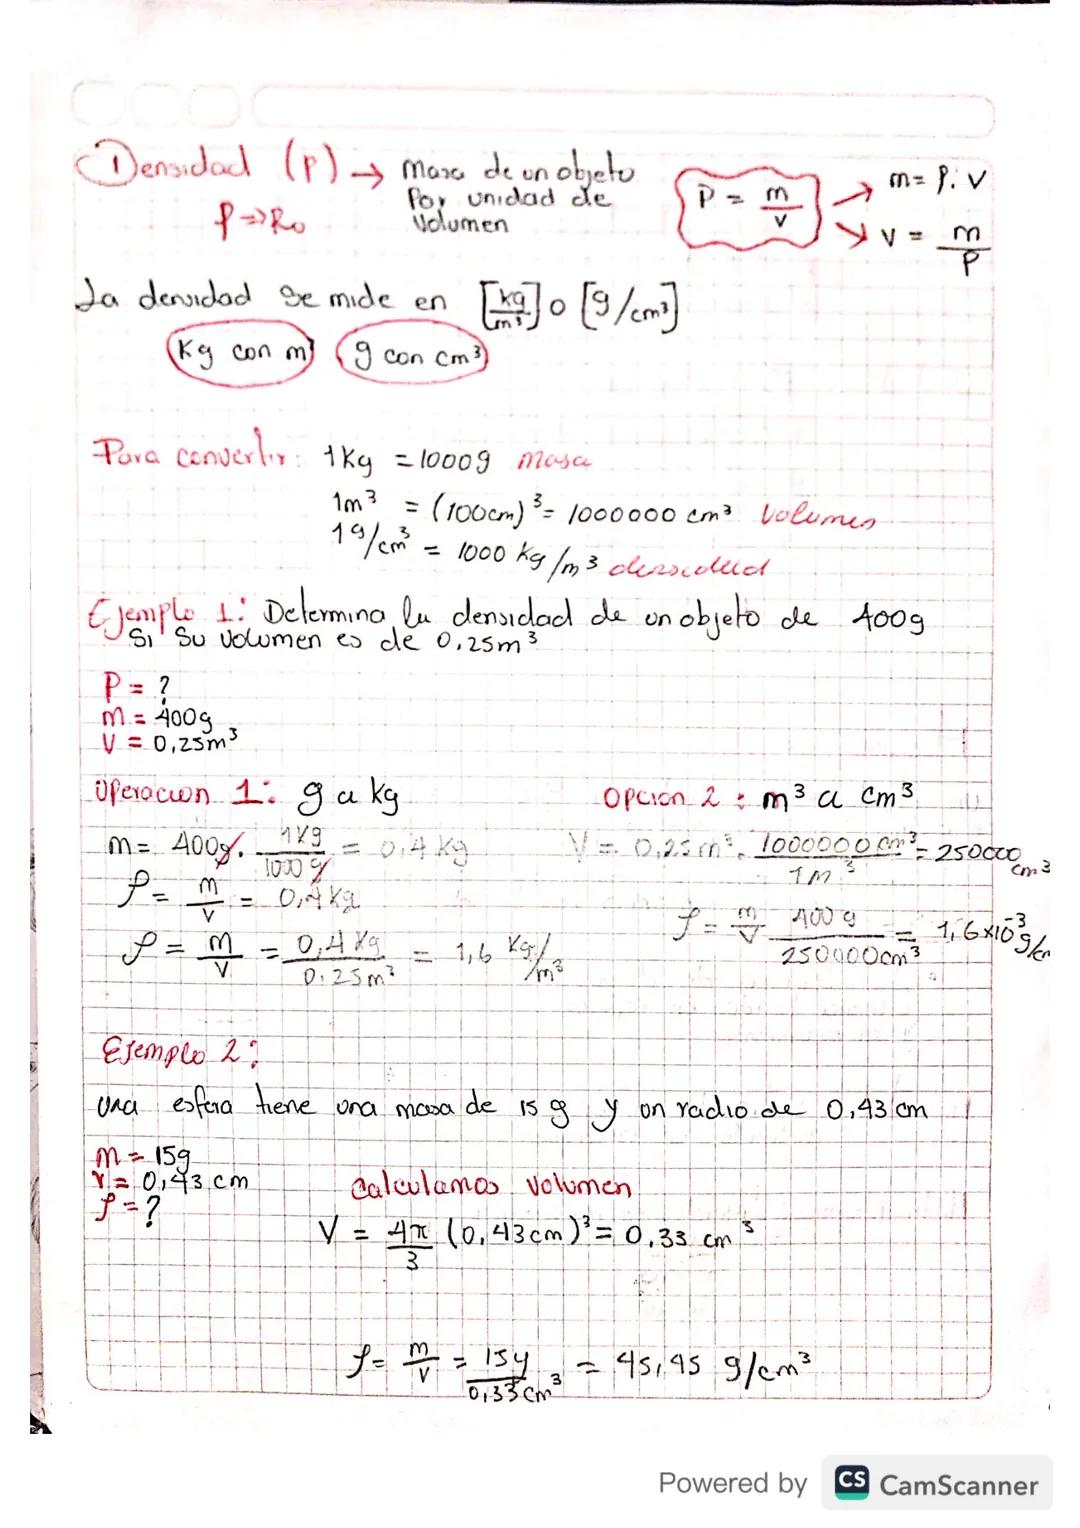 Densidad (ρ) → Masa de un objeto
por unidad de
Volumen
ρ => Ro
ρ = m/v
m = ρ. V
V = m/ρ
La densidad se mide en [kg/m³] o [g/cm³]
Kg con m³
g con cm³
Para convertir: 1Kg = 1000g masa
1m³ = (100cm)³ = 1000000 cm³ Volumen
1g/cm³ = 1000 Kg/m³ densidad
Ejemplo 1: Determina la densidad de un objeto de 400g
Si su volumen es de 0,25m³
ρ = ?
m = 400g
V = 0,25m³
Operacion 1: g a kg
m = 400g. 1Kg/1000g = 0,4 Kg
ρ = m/v = 0,4 Kg
ρ = m/v = 0,4 Kg/0.25m³ = 1,6 Kg/m³
Opcion 2 : m³ a cm³
V = 0,25m³. 1000000cm³/1m³ = 250000 cm³
ρ = m/v 400g/250000cm³ = 1,6x10⁻³ g/cm
Ejemplo 2:
Una esfera tiene una masa de 15 g y un radio de 0,43 cm
m = 15g
r = 0,43 cm
ρ = ?
Calculamos volumen
V = 4π/3 (0,43cm)³ = 0,33 cm³
ρ = m/v = 15g/0,33cm³ = 45,45 g/cm³
Powered by CS CamScanner